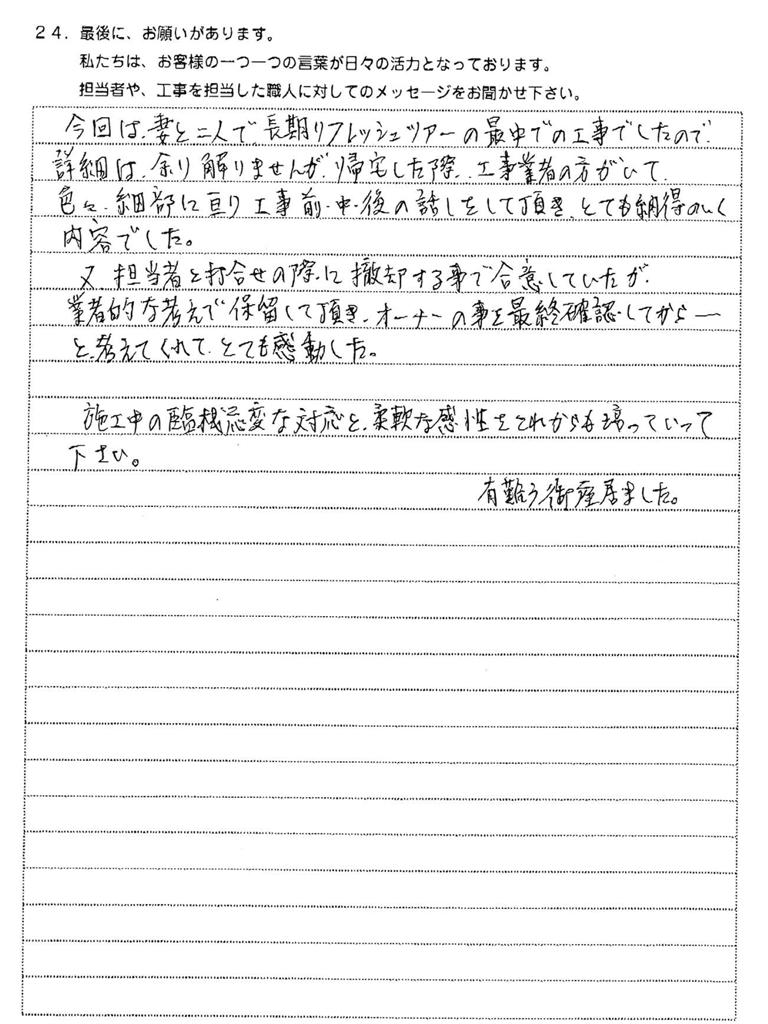 24. 最後に、お願いがあります。
私たちは、お客様の一つ一つの言葉が日々の活力となっております。
担当者や、工事を担当した職人に対してのメッセージをお聞かせ下さい。
今回は、妻と二人で、長期リフレッシュツアーの最中での工事でしたので、
詳細は、余り解りませんが、帰宅した際、工事業者の方がいて、
色々、細部に亘り工事前・中・後の話しをして頂き、とても納得のいく
内容でした。
又、担当者と打合せの際に撤却する事で合意していたが、
業者的な考えで保留して頂き、オーナーの事を最終確認してから―
と、考えてくれて、とても感動した。
施工中の臨機応変な対応と、柔軟な感性をこれからも培っていって
下さい。
有難う御座居ました。